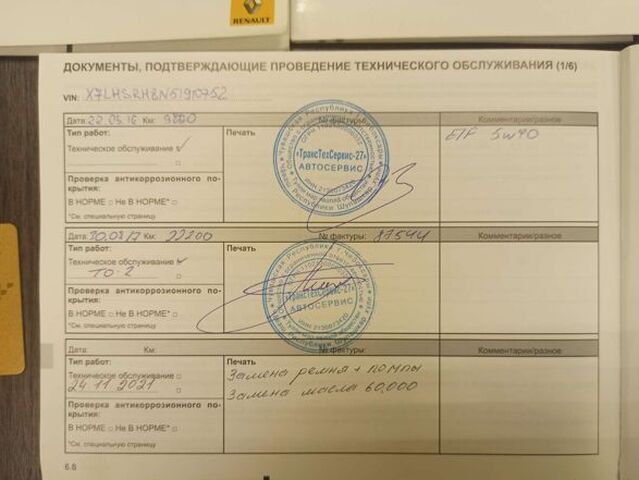 RENAULT
ДОКУМЕНТЫ, ПОДТВЕРЖДАЮЩИЕ ПРОВЕДЕНИЕ ТЕХНИЧЕСКОГО ОБСЛУЖИВАНИЯ (1/6)
VIN:
Дата: 22.05.16 Км: 9800 № фактуры: Комментарии/разное
Тип работ: Печать ELF 5w40
Техническое обслуживание ✓
«ТрансТехСервис-27»
АВТОСЕРВИС
Проверка антикоррозионного по-
крытия:
В НОРМЕ □ Не В НОРМЕ* □
*См. специальную страницу
Дата: Км: 22200 № фактуры: 87544 Комментарии/разное
Тип работ: Печать
Техническое обслуживание ✓
ТО-2
«ТрансТехСервис-27»
АВТОСЕРВИС
Проверка антикоррозионного по-
крытия:
В НОРМЕ □ Не В НОРМЕ* □
*См. специальную страницу
Дата: Км: № фактуры: Комментарии/разное
Тип работ: Печать
Техническое обслуживание □ Замена ремня + помпы
24 11 2021 Замена масла 60,000
Проверка антикоррозионного по-
крытия:
В НОРМЕ □ Не В НОРМЕ* □
*См. специальную страницу
6.8